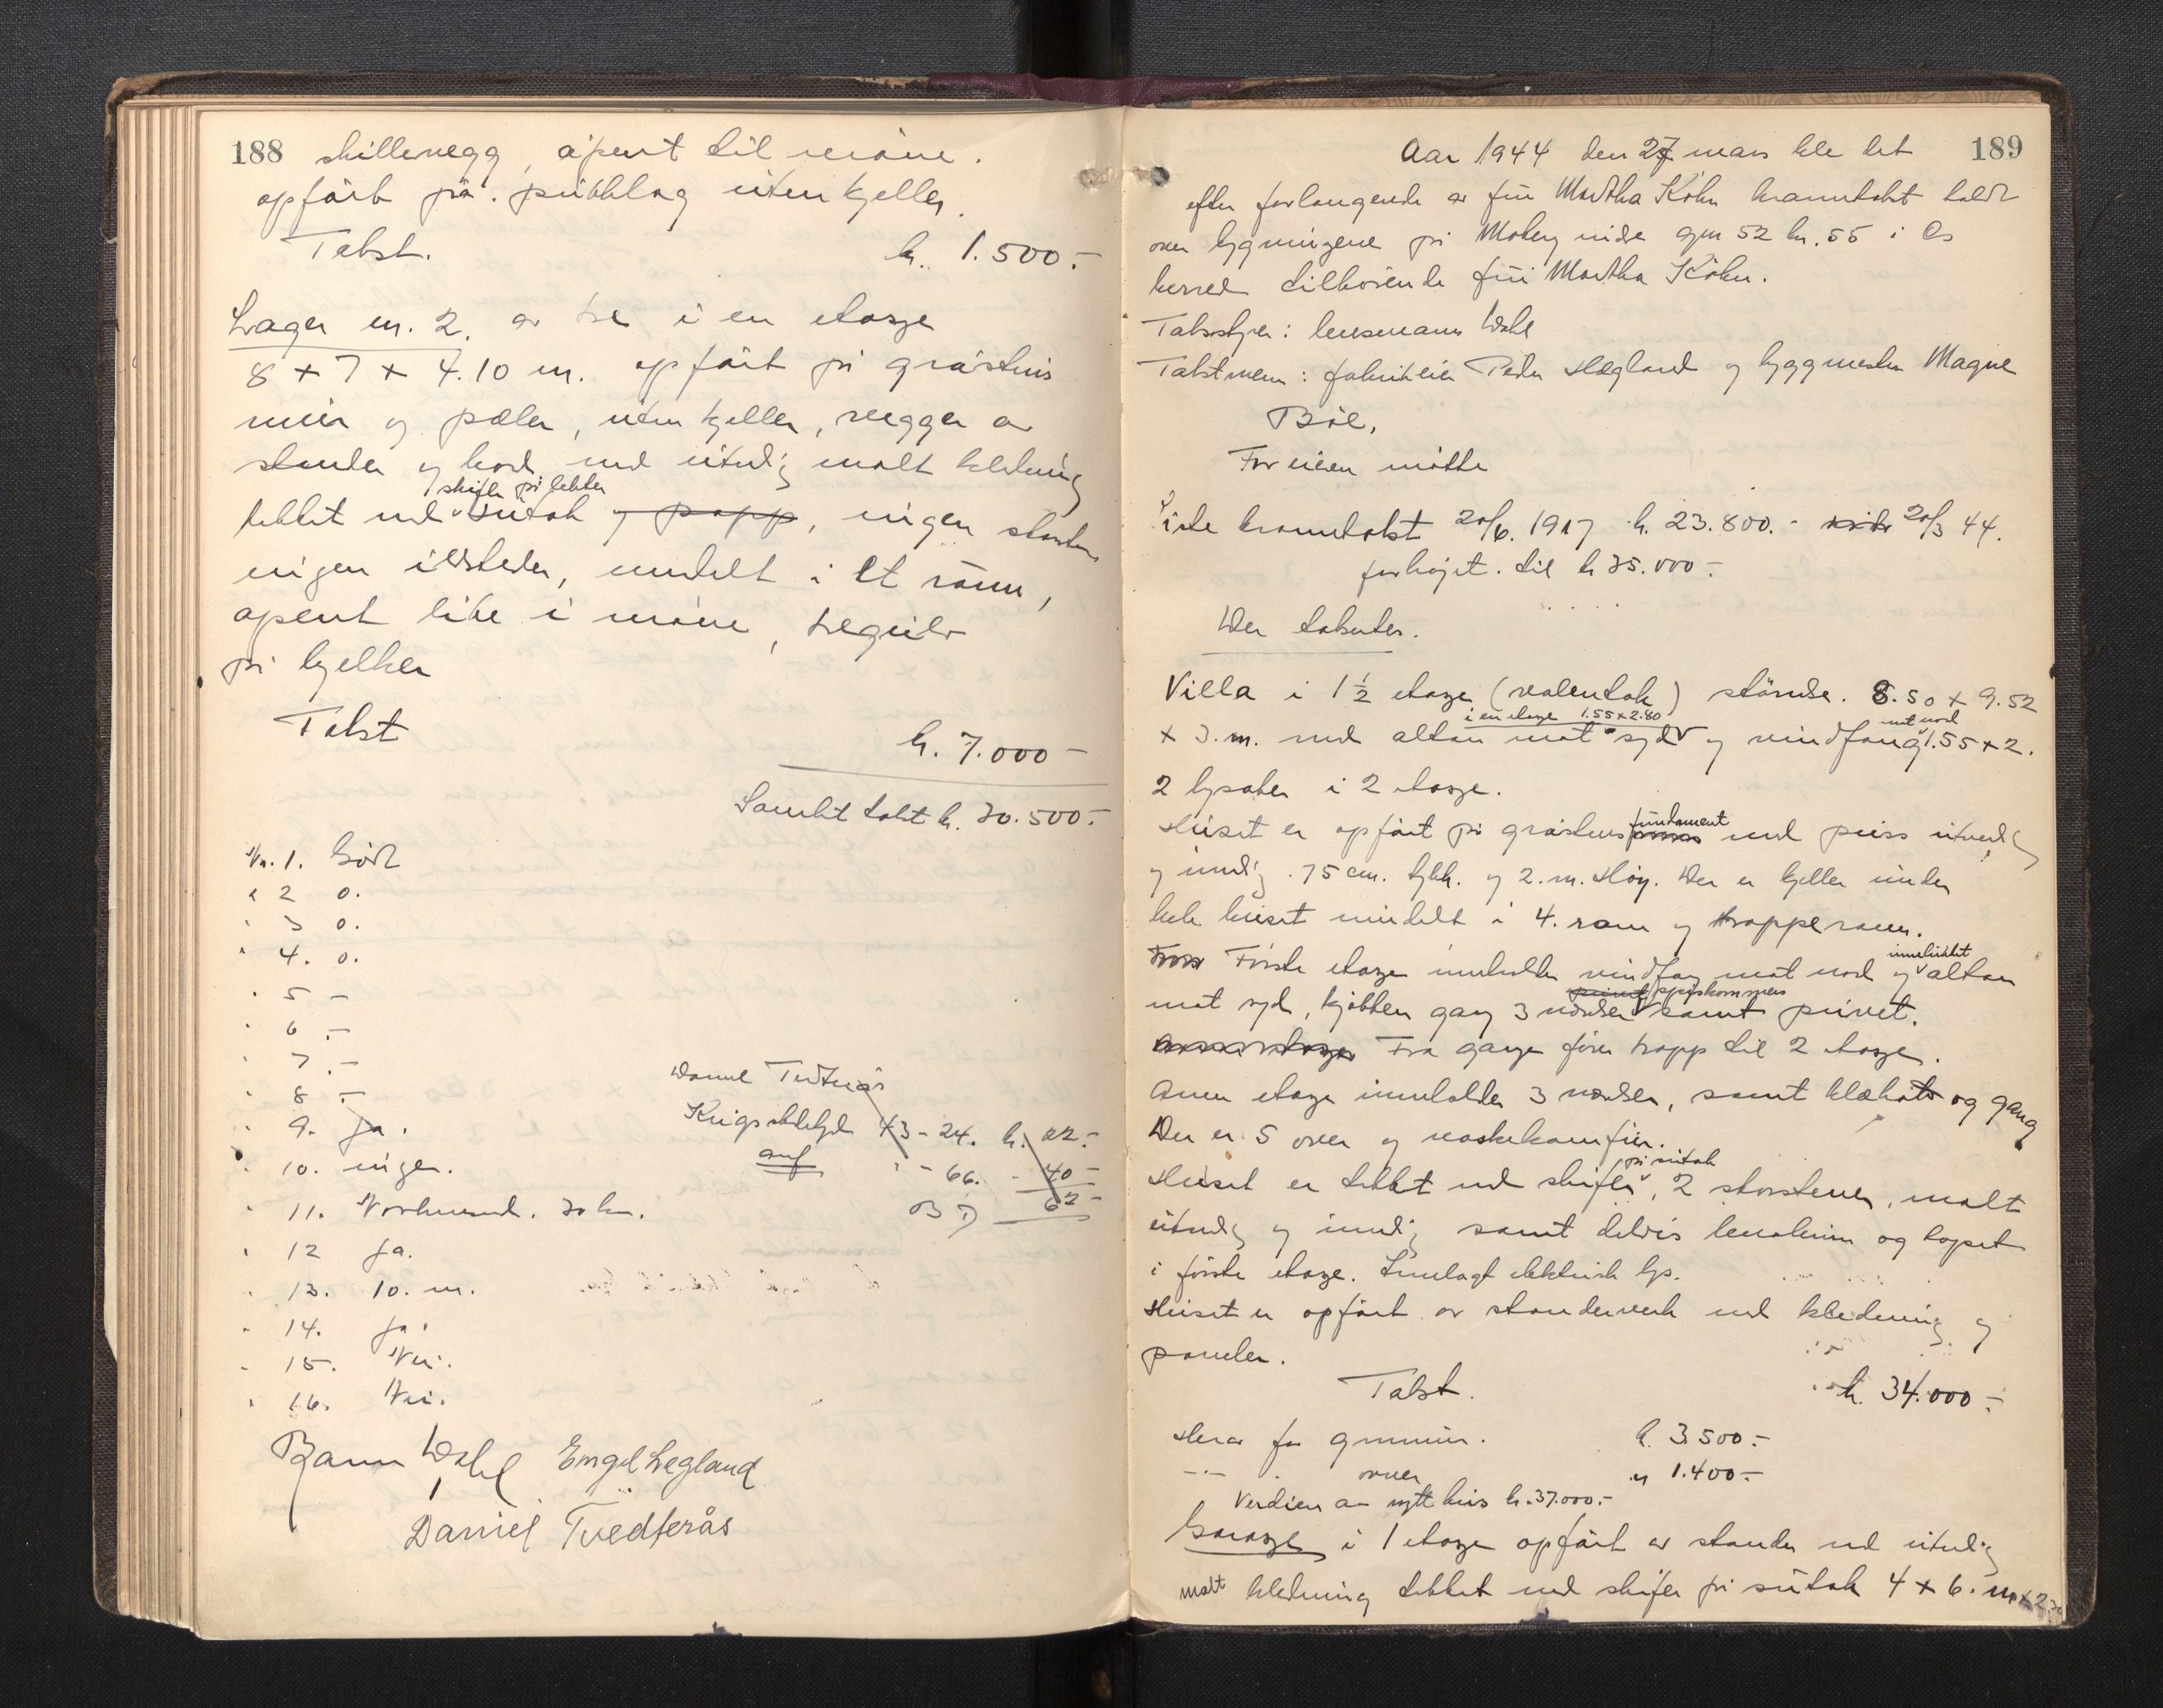 188 skillevegg, åpent til møne.
opført på pukklag uten kjeller.
Takst. kr. 1.500.-
Lager nr. 2. av tre i en etasje
8 x 7 x 4.10 m. opført på gråstens
mur og pæler, uten kjeller, vegger av
stender og bord med utvendig malt kledning
skifer på lekter
tekket med sutak og papp, ingen skorsten
ingen ildsteder, innredet i et rum,
åpent like i møne, tregulv
på bjelker
Takst kr. 7.000-
Samlet takst kr. 30.500.-
Nr. 1. Godt
" 2 0.
" 3 0.
" 4. 0.
" 5 -
" 6 -
" 7 -
" 8 -
" 9. Ja.
" 10. ingen.
" 11. Nordmund. 30 km.
" 12 Ja.
" 13. 10. m.
" 14. Ja.
" 15. Nei.
" 16. Nei.
Daniel Tvedterås
Krigsskadeavgift 43 - 24. kr. 22.-
" - 66. - 40-
62-
Wahl Engel Legland
Daniel Tvedterås
189
Aar 1944 den 27 mars ble det
efter forlangende av fru Martha Köhn branntakst holdt
over bygningene på Moberg nidre gnr 52 br. 55 i Os
herred tilhørende fru Martha Köhn.
Takstsstyrer: lensmann Wahl
Takstmenn: fabrikeier Peder Hegland og byggmester Magne
Böe.
For eieren møtte
Siste branntakst 20/6. 1917 kr. 23.800.- 20/3 44.
forhøjet til kr 35.000-
Der taksertes.
Villa i 1 1/2 etasje (valentak) størrelse. 8.50 x 9.52
i en etasje 1.55 x 2.80 mot nord
x 3. m. med altan mot syd og vindfang 1.55 x 2.
2 kvister i 2 etasje.
fundament
Huset er opført på gråstens med puss utvendig
og innvendig. 75 cm. tykk. og 2. m. Høy. Der er kjeller under
hele huset inndelt i 4. rom og trapperom.
innelukket
Første etasje inneholder vindfang mot nord og altan
spiskammers
mot syd, kjøkken gang 3 værelser samt privet.
Fra gangen fører trapp til 2 etasje.
Annen etasje inneholder 3 værelser, samt klækott og gang
Der er 5 ovner og vaskekomfur.
på sutak
Huset er tekket med skifer, 2 skorstener, malt
utvendig og innvendig samt delvis lenoleum og tapet
i første etasje. Innlagt elektrisk lys.
Huset er opført av stenderverk med kledning og
paneler.
Takst. kr. 34.000.-
Herav for grunnmur. kr. 3.500.-
-"- ovner " 1.400.-
Verdien av nytt hus kr. 37.000.-
Garasje i 1 etasje opført av stender med utvendig
malt kledning tekket med skifer på sutak 4 x 6. m x 2.